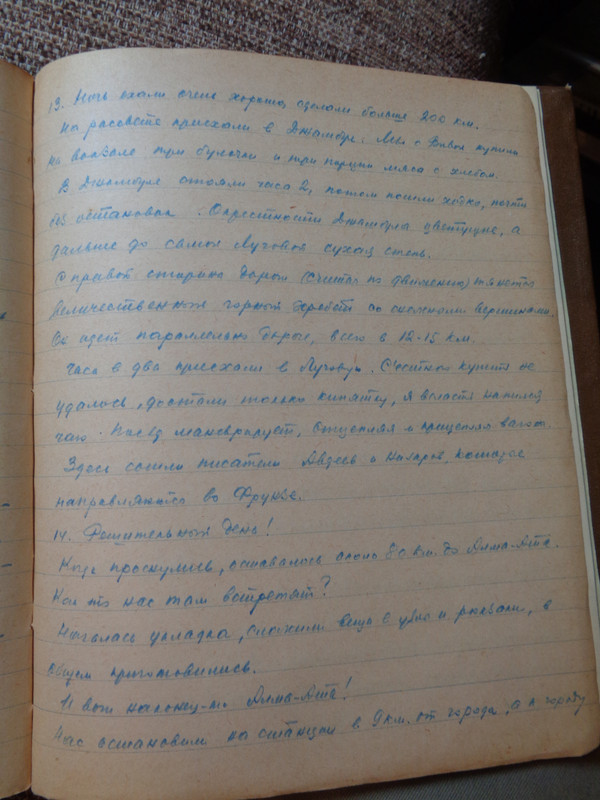 13. Ночь ехали очень хорошо, сделали больше 200 км.
На рассвете приехали в Джамбул. Мы с Вивой купили
на вокзале три булочки и три порции мяса с хлебом.
В Джамбуле стояли часа 2, потом пошли ходко, почти
без остановок. Окрестности Джамбула цветущие, а
дальше до самой Луговой сухая степь.
С правой стороны дороги (считая по движению) тянется
величественный горный хребет со снежными вершинами.
Он идет параллельно дороге, всего в 12-15 км.
Часа в два приехали в Луговую. Съестного купить не
удалось, достали только кипятку, я всласть напился
чаю. Поезд маневрирует, отцепляя и прицепляя вагоны.
Здесь сошли писатели Авдеев и, которые
направляются во Фрунзе.
14. Решительный день!
Когда проснулись, оставалось около 80 км. до Алма-Ата.
Как то нас там встретят?
Началась укладка, сложили вещи в узлы и рюкзаки, в
общем приготовились.
И вот наконец-то Алма-Ата!
Нас остановили на станции в 9 км. от города, а к городу